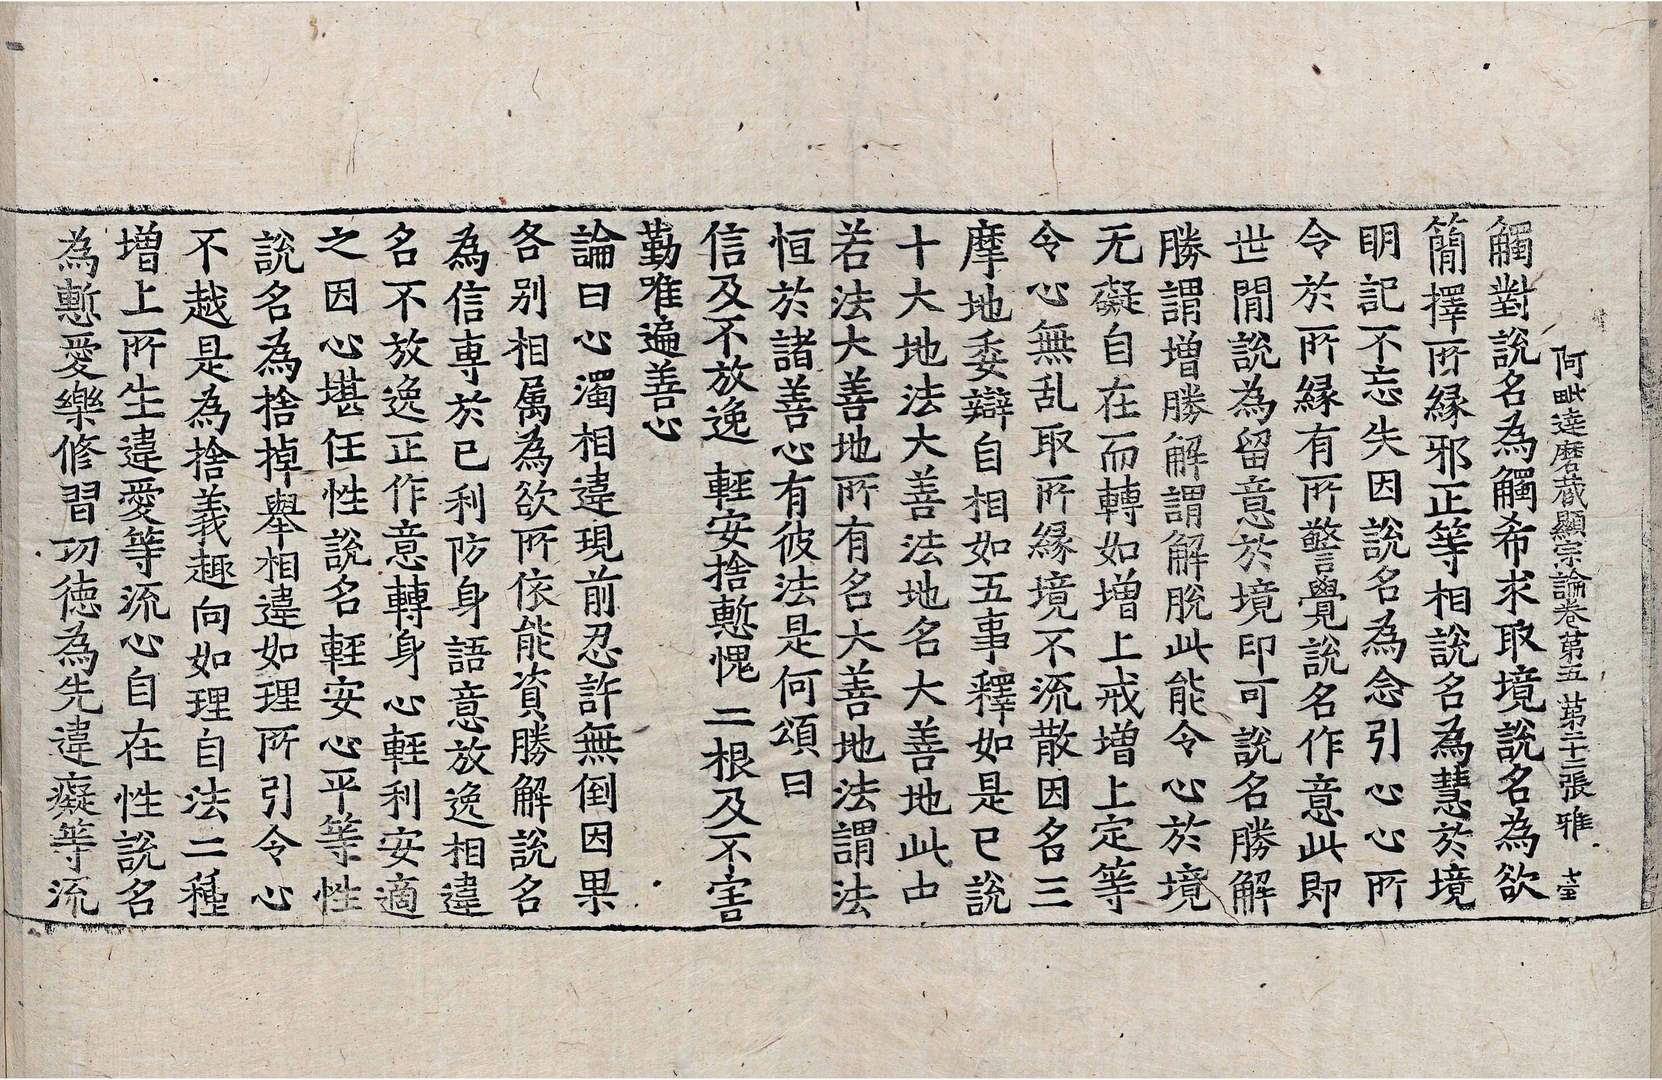 阿毗達磨藏顯宗論卷第五 第二十二張 雅
觸對說名為觸希求取境說名為欲
簡擇所緣邪正等相說名為慧於境
明記不忘失因說名為念引心心所
令於所緣有所警覺說名作意此即
世間說為留意於境印可說名勝解
勝謂增勝解謂解脫此能令心於境
无礙自在而轉如增上戒增上定等
令心無乱取所緣境不流散因名三
摩地委辯自相如五事釋如是已說
十大地法大善法地名大善地此中
若法大善地所有名大善地法謂法
恒於諸善心有彼法是何頌曰
信及不放逸 輕安捨慙愧 二根及不害
勤唯遍善心
論曰心濁相違現前忍許無倒因果
各別相属為欲所依能資勝解說名
為信専於已利防身語意放逸相違
名不放逸正作意轉身心輕利安適
之因心堪任性說名輕安心平等性
說名為捨掉舉相違如理所引令心
不越是為捨義趣向如理自法二種
增上所生違愛等流心自在性說名
為慙愛樂修習功德為先違癡等流